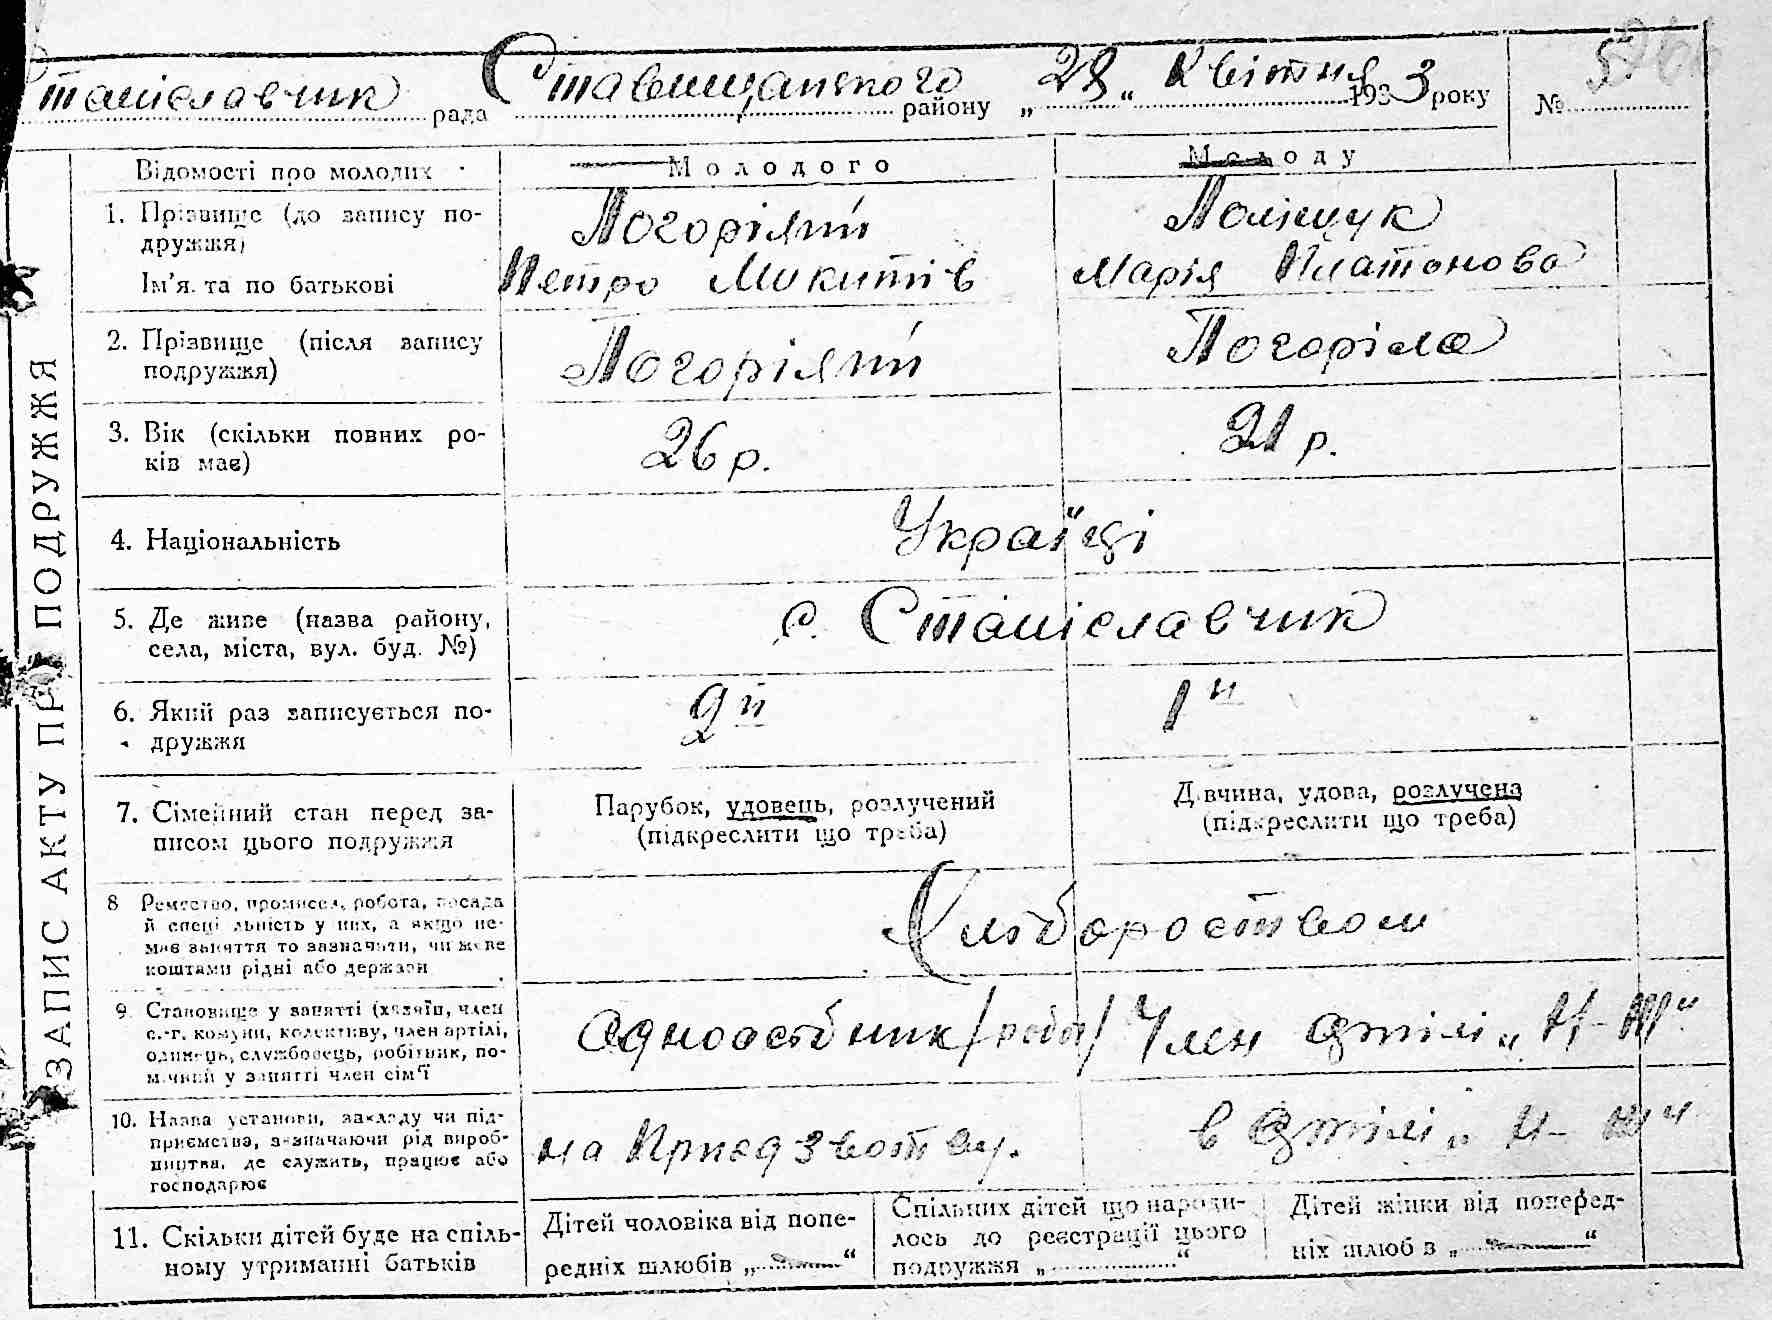 Станіславчик рада Ставищанського району „28" Квітня 1933 року №
ЗАПИС АКТУ ПРО ПОДРУЖЖЯ
Відомості про молодих
Молодого
Молоду
1. Прізвище (до запису по-
дружжя)
Ім'я та по батькові
Погорілий
Петро Микитів
Поліщук
Марія Платонова
2. Прізвище (після запису
подружжя)
Погорілий
Погоріла
3. Вік (скільки повних ро-
ків має)
26 р.
21 р.
4. Національність
Українці
5. Де живе (назва району,
села, міста, вул. буд. №)
с. Станіславчик
6. Який раз записується по-
дружжя
2й
1й
7. Сімейний стан перед за-
писом цього подружжя
Парубок, удовець, розлучений
(підкреслити що треба)
Дівчина, удова, розлучена
(підкреслити що треба)
8 Ремество, промисел, робота, посада
й спеціальність у них, а якщо не-
має заняття то зазначити, чи живе
коштами рідні або держави
Хліборобством
9. Становище у занятті (хазяїн, член
с.-г. комуни, колективу, член артілі,
одинець, службовець, робітник, по-
мічний у занятті член сім'ї
Одноосібник
Член артілі
10. Назва установи, закладу чи під-
приємства, зазначаючи рід вироб-
ництва, де служить, працює або
господарює
на
в артілі
11. Скільки дітей буде на спіль-
ному утриманні батьків
Дітей чоловіка від попе-
редніх шлюбів „ "
Спільних дітей що народи-
лось до реєстрації цього
подружжя „ "
Дітей жінки від поперед-
ніх шлюбів „ "